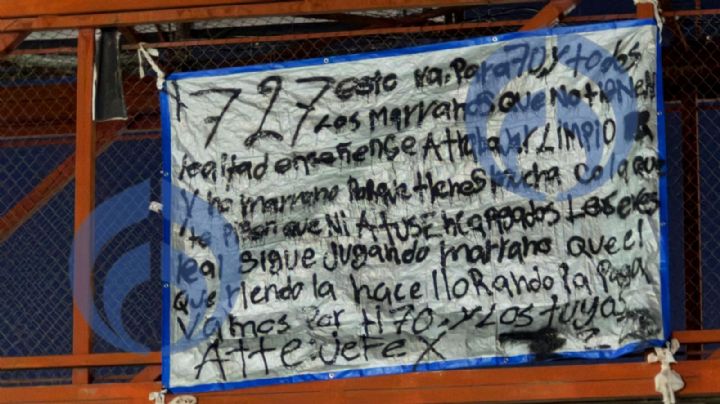 +727 Esto va Para 70, y todos
Los Marranos Que No tienen
lealtad enseñense A trabajar LIMPIO
Y no marrano Porque tienes Mucha cola que
te Pisen que Ni A tus Encargados Les eres
leal sigue Jugando marrano que el
que riendo la hace lloRando la Paga
Vamos Por ti 70. y Los tuyos
Atte: Jefe X